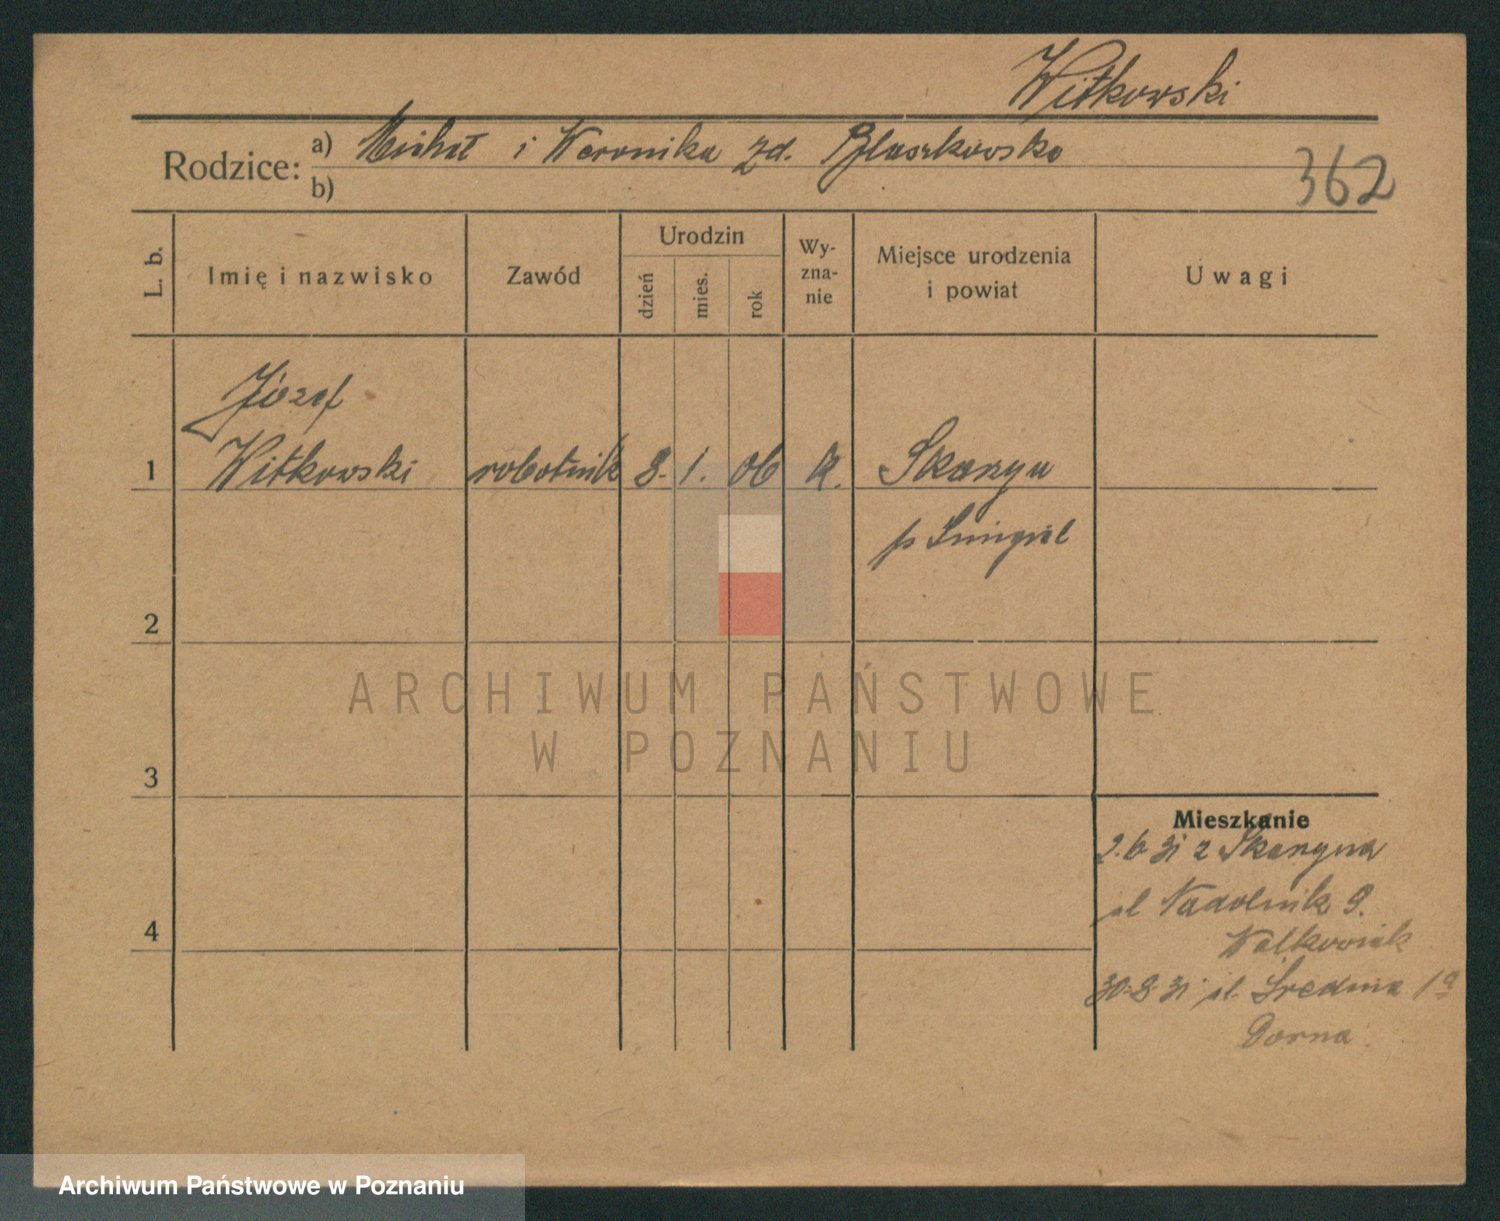 Witkowski
Rodzice: a) Michał i Weronika zd. Błaszkowska
b)
362
L. b.
Imię i nazwisko
Zawód
Urodzin
dzień
mies.
rok
Wy-
zna-
nie
Miejsce urodzenia
i powiat
Uwagi
Józef
1 Witkowski robotnik 8. 1. 06 R.
p Śmigiel
2
ARCHIWUM PAŃSTWOWE
W POZNANIU
3
Mieszkanie
2.6 31 z
ul Nadolnik 9.
4
Walkowiak
30.8.31 ul. Średnia 1a
Dorna
Archiwum Państwowe w Poznaniu